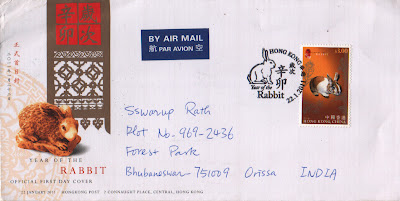 歲次
辛卯
正式首日封
YEAR OF THE
RABBIT
OFFICIAL FIRST DAY COVER
22 JANUARY 2011 / HONGKONG POST / 2 CONNAUGHT PLACE, CENTRAL, HONG KONG
BY AIR MAIL
航 PAR AVION 空
HONG KONG 香港
歲次
辛卯
Year of the
Rabbit
22.1.2011
$5.00
中國香港
HONG KONG, CHINA
Sswarup Rath
Plot No-969-2436
Forest Park
Bhubaneswar 751009 Orissa INDIA